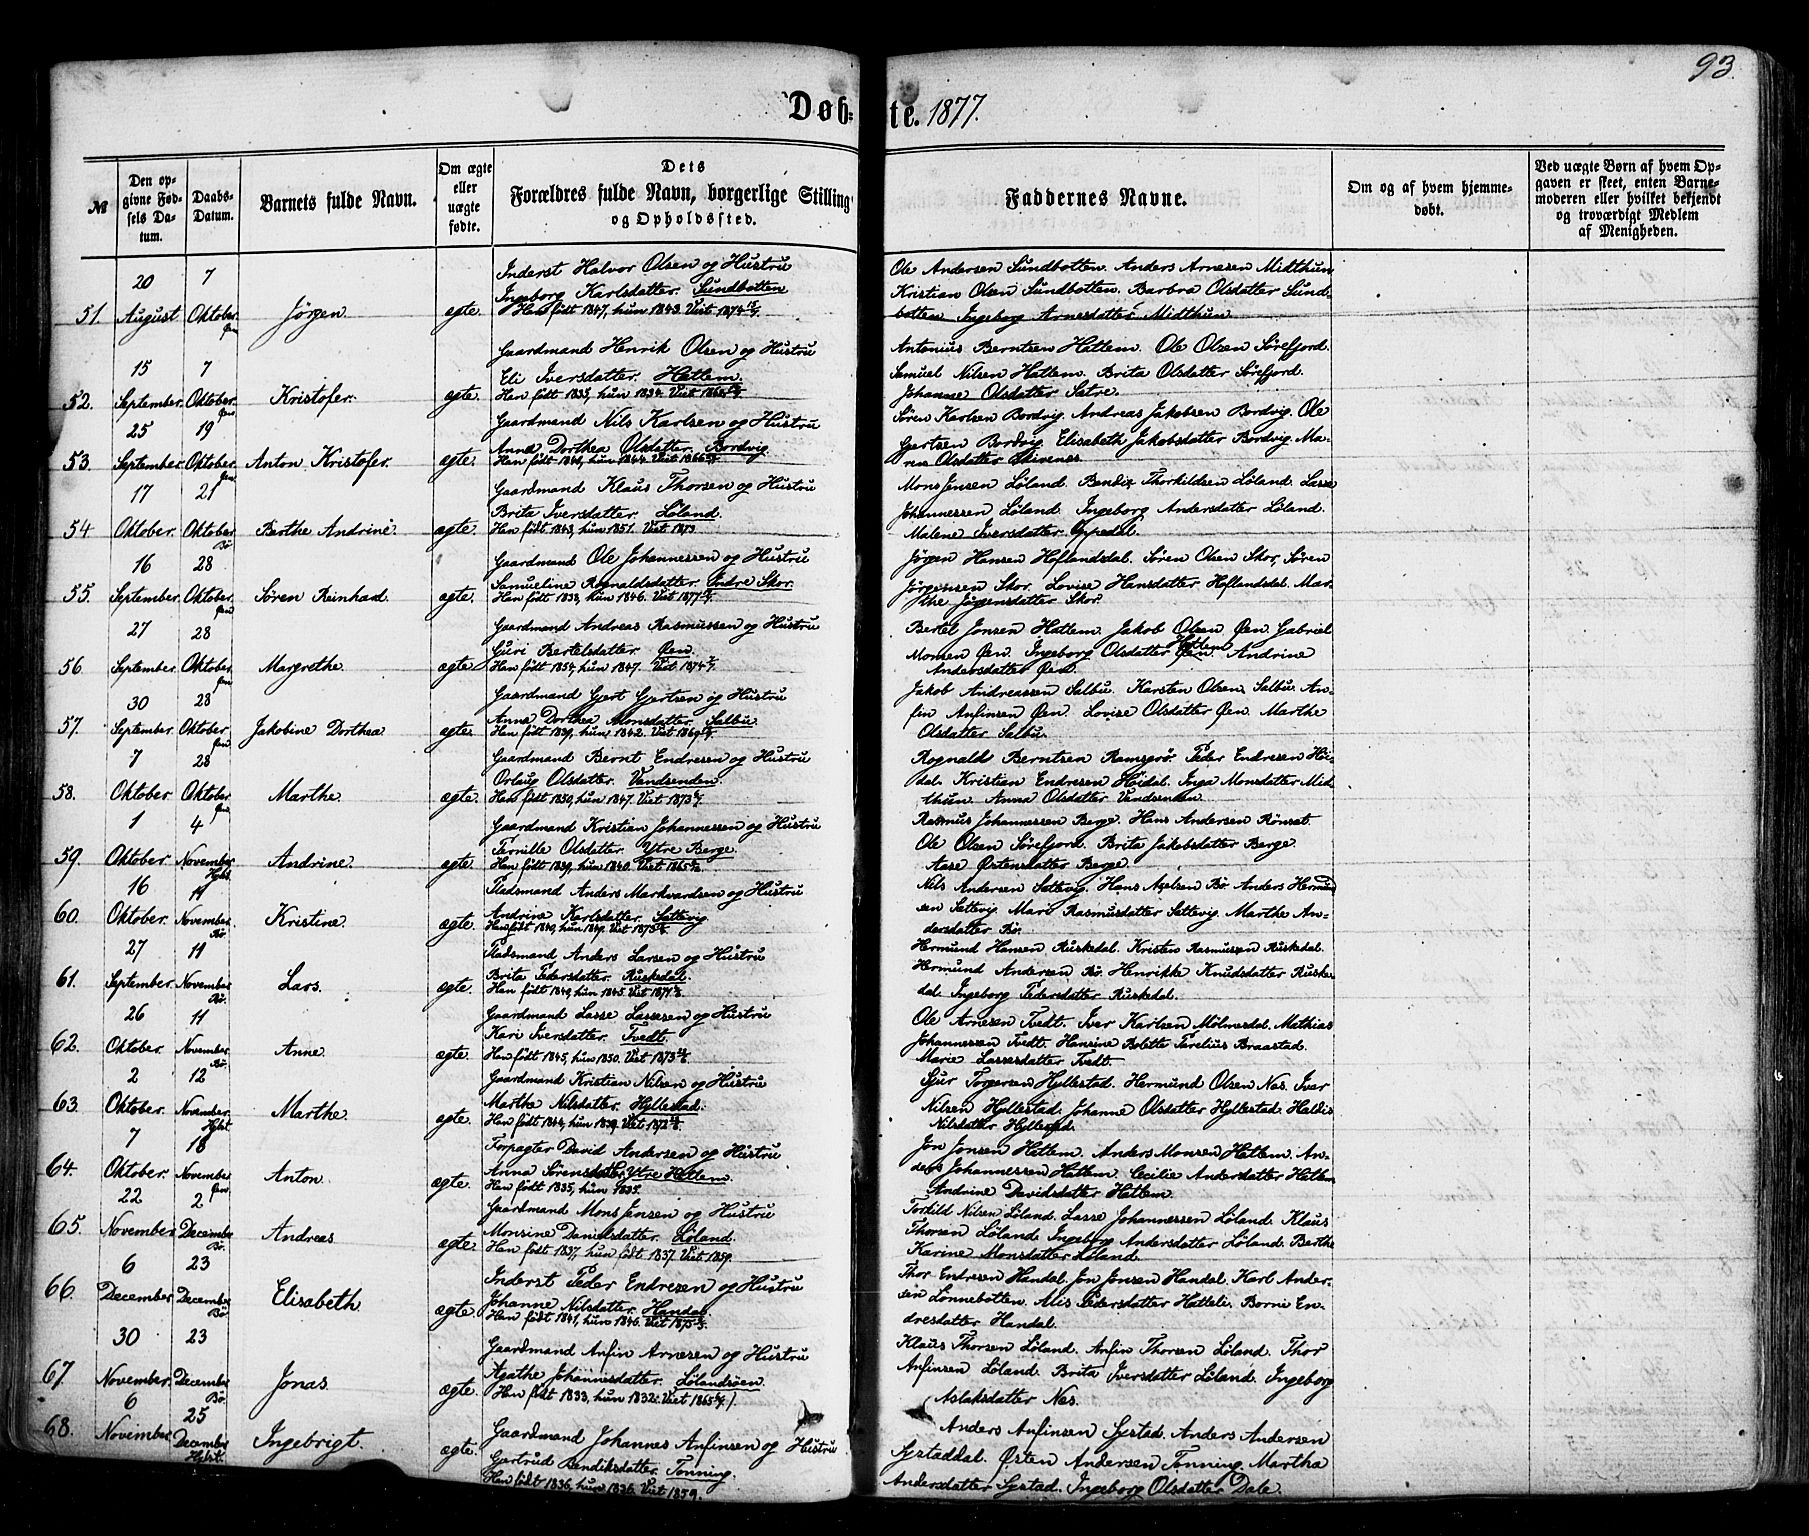 93
Døbte. 1877.
№
Den opgivne Fødsels Datum.
Daabs-Datum.
Barnets fulde Navn.
Om ægte eller uægte fødte.
Dets Forældres fulde Navn, borgerlige Stilling og Opholdssted.
Faddernes Navne.
Om og af hvem hjemmedøbt.
Ved uægte Børn af hvem Opgaven er skeet, enten Barnemoderen eller hvilket bekjendt og troværdigt Medlem af Menigheden.
51. 20 August 7 Oktober Jørgen ægte.
Inderst Halvor Olsen og Hustru
Ingeborg Karlsdatter. Sundbotten
Han født 1847, hun 1843. Viet 1874
Ole Andersen Sundbotten. Anders Arnesen Midthun
Kristian Olsen Sundbotten. Barbra Olsdatter Sund-
botten Ingeborg Arnesdatter Midthun
52. 15 September. 7 Oktober Kristofer. ægte.
Gaardmand Henrik Olsen og Hustru
Eli Iversdatter. Hatlem.
Han født 1835, hun 1834. Viet
Antonius Berntsen Hatlem. Ole Olsen Sørefjord.
Samuel Nilsen Hatlem. Brita Olsdatter Sørefjord.
Johanne Olsdatter Sætre.
53. 25 September 19 Oktober Anton Kristofer. ægte.
Gaardmand Nils Karlsen og Hustru
Anna Dorthea Olsdatter. Bordvig.
Han født hun 1844. Viet 1866
Søren Karlsen Bordvig. Andreas Jakobsen Bordvig. Ole
Gjertsen Bordvig. Elisabeth Jakobsdatter Bordvig. Ma-
ren Olsdatter Skivenes.
54 17 Oktober. 21 Oktober Berthe Andrine. ægte.
Gaardmand Klaus Thorsen og Hustru
Brita Iversdatter. Løland.
Han født 1843, hun 1851. Viet 1873
Mons Jensen Løland. Bendix Thorkildsen Løland. Lasse
Johannessen Løland. Ingeborg Andersdatter Løland.
Malene Iversdatter Oppedal.
55. 16 September. 28 Oktober Søren Reinhard ægte.
Gaardmand Ole Johannessen og Hustru
Samueline Rognaldsdatter. Indre Skor.
Han født 1838, hun 1846. Viet 1877
Jørgen Hansen Hoflandsdal. Søren Olsen Skor, Søren
Jørgensen Skor. Lovise Hansdatter Hoflandsdal. Mar-
the Jørgensdatter Skor.
56. 27 September 28 Oktober Margrethe. ægte.
Gaardmand Andreas Rasmussen og Hustru
Guri Bertelsdatter. Øen.
Han født 1854, hun 1847. Viet 1874
Bertel Jonsen Hatlem. Jakob Olsen Øen. Gabriel
Monsen Øen. Ingeborg Olsdatter Hatlem Andrine
Andersdatter Øen.
57. 30 September 28 Oktober Jakobine Dorthea ægte.
Gaardmand Gjert Gjertsen og Hustru
Anna Dorthea Monsdatter. Salbu.
Han født 1839, hun 1842. Viet 1869
Jakob Andreassen Salbu. Karsten Olsen Salbu. An-
fin Anfinsen Øen. Lovise Olsdatter Øen. Marthe
Olsdatter Salbu.
58. 7 Oktober 28 Oktober Marthe. ægte.
Gaardmand Bernt Endresen og Hustru
Orlaug Olsdatter. Vandsenden.
Han født 1850, hun 1847. Viet 1873
Rognald Berntsen Ramsgrø. Peder Endresen Høi-
dal. Kristian Endresen Høidal. Inga Monsdatter Mid-
thun. Anna Olsdatter Vandsenden.
59. 1 Oktober 4 November Andrine. ægte.
Gaardmand Kristian Johannessen og Hustru
Pernille Olsdatter. Ytre Berge.
Han født 1839, hun 1840. Viet 1865
Rasmus Johannessen Berge. Hans Andersen Rønset.
Ole Olsen Sørefjord. Brita Jakobsdatter Berge.
Aase Østensdatter Berge.
60. 16 Oktober. 11 November. Kristine. ægte.
Pladsmand Anders Markvardsen og Hustru
Andrine Karlsdatter. Sættevig.
Han født 1840, hun 1849. Viet 1873
Nils Andersen Sættevig. Hans Axelsen Bø. Anders Hermund-
sen Sættevig. Mari Rasmusdatter Sættevig. Marthe An-
dersdatter Bø.
61. 27 September 11 November Lars. ægte.
Pladsmand Anders Larsen og Hustru
Brita Pedersdatter. Ruskedal.
Han født 1840, hun 1845. Viet 1871
Hermund Hansen Ruskedal. Kristen Rasmussen Ruskedal.
Hermund Andersen Bø. Henrikke Knudsdatter Ruske-
dal. Ingeborg Pedersdatter Ruskedal.
62. 26 Oktober. 11 November. Anne. ægte.
Gaardmand Lasse Lassesen og Hustru
Kari Iversdatter. Tvedt.
Han født 1845, hun 1850. Viet 1873
Ole Arnesen Tvedt. Iver Karlsen Mølmesdal. Mathias
Johannessen Tvedt. Hansine Bolette Parelius Braastad.
Marie Lassesdatter Tvedt.
63. 2 Oktober. 12 November. Marthe. ægte.
Gaardmand Kristian Nilsen og Hustru
Marthe Nilsdatter. Hyllestad.
Han født 1844, hun 1839. Viet 1872
Sjur Torgersen Hyllestad. Hermund Olsen Nes. Iver
Nilsen Hyllestad. Johanne Olsdatter Hyllestad. Haldis
Nilsdatter Hyllestad.
64. 7 Oktober. 18 November Anton. ægte.
Forpagter David Andersen og Hustru
Anna Sørensdatter. Ytre Hatlem.
Han født 1835, hun 1835.
Jon Jonsen Hatlem. Anders Monsen Hatlem. An-
ders Johannessen Hatlem. Cecilie Andersdatter Hatlem
Andrine Davidsdatter Hatlem.
65. 22 November 2 December Andreas ægte.
Gaardmand Mons Jensen og Hustru
Monsine Danielsdatter. Løland.
Han født 1837, hun født 1837. Viet 1859.
Torkild Nilsen Løland. Lasse Johannessen Løland. Klaus
Thorsen Løland. Ingeborg Andersdatter Løland. Berthe
Karine Monsdatter Løland.
66. 6 December 23 December Elisabeth ægte.
Inderst Peder Endresen og Hustru
Johanne Nilsdatter. Handal.
Han født 1841, hun 1846. Viet 1875
Thor Endresen Handal. Jon Jonsen Handal. Karl Ander-
sen Lønnebotten. Mis Pedersdatter Hatteli. Borni En-
dresdatter Handal.
67. 30 November. 23 December Jonas. ægte.
Gaardmand Anfin Arnesen og Hustru
Agathe Johannesdatter. Lølandsøen.
Han født 1833, hun 1832. Viet 1865
Klaus Thorsen Løland. Anfin Thorsen Løland. Thor
Anfinsen Løland. Brita Iversdatter Løland. Ingeborg
Aslaksdatter Nes.
68. 6 November. 25 December Ingebrigt. ægte.
Gaardmand Johannes Anfinsen og Hustru
Gjertrud Bendiksdatter. Tønning.
Han født 1836, hun 1836. Viet 1859.
Anders Anfinsen Systad. Anders Andersen
Systaddal. Østen Andersen Tønning. Martha
Andersdatter Systad. Ingeborg Olsdatter Dale.